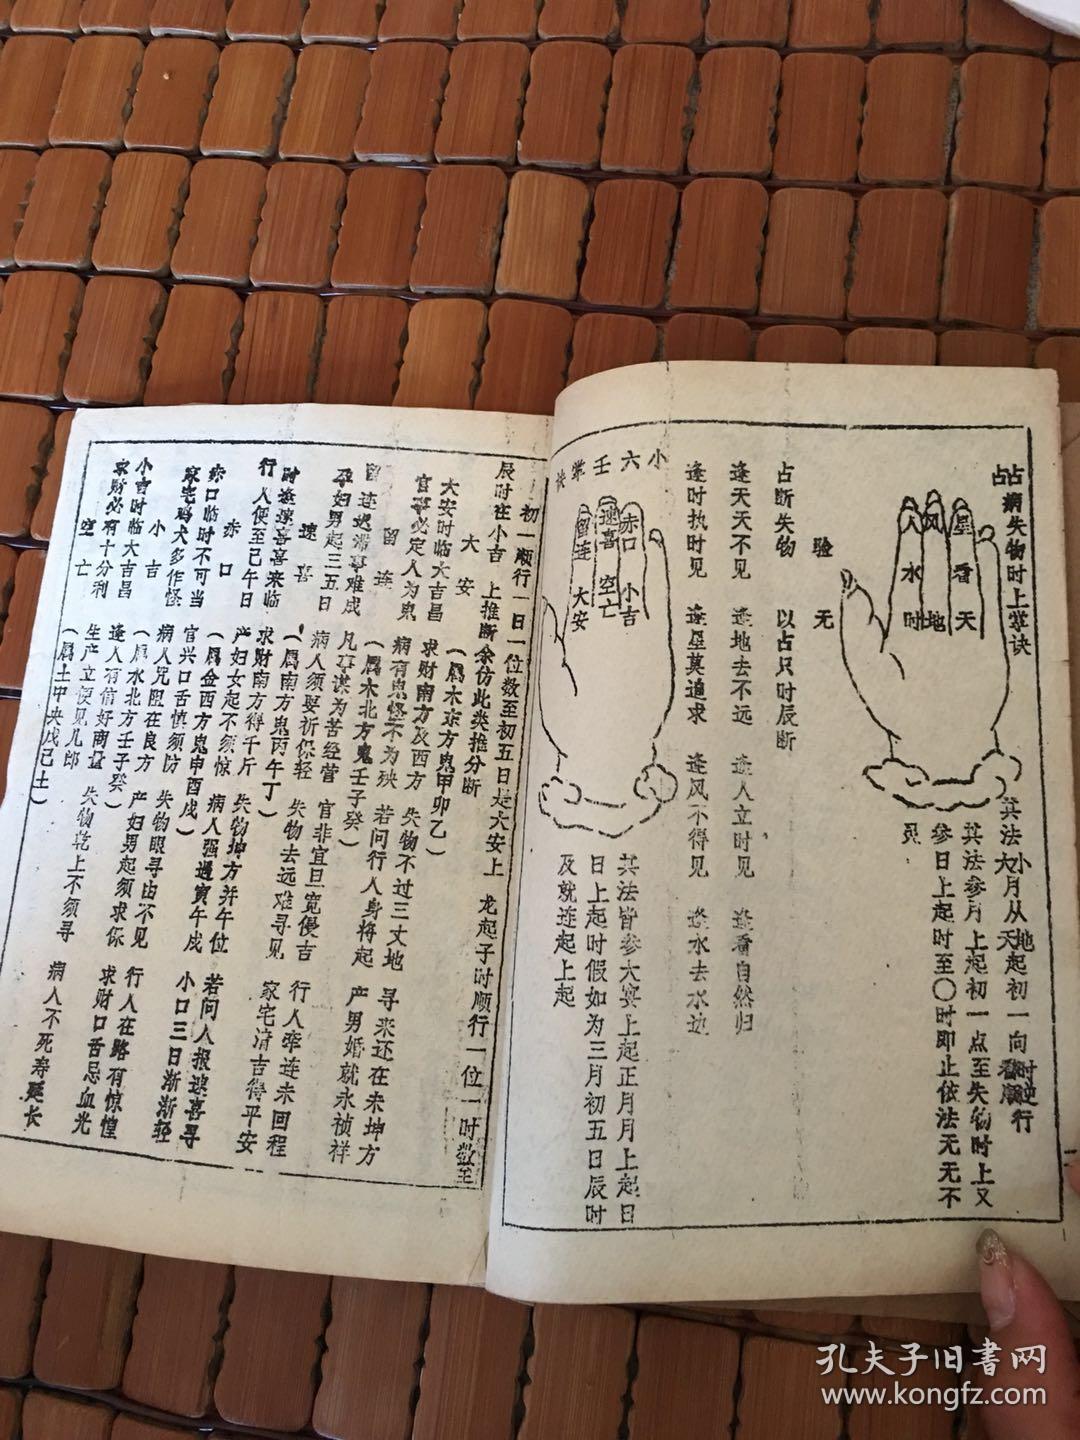 占病失物时上掌诀
星看天
风地
人水时
其法大月从天起初一向
小 地
时逆行
其法参月上起初一点至失物时上又
参日上起时至〇时即止依法无无不
灵
验 无
占断失物 以占只时辰断
逢天天不见 逢地去不远 逢人立时见 逢看自然归
逢时执时见 逢星莫追求 逢风不得见 逢水去水边
小六壬掌诀
赤口 小吉
速喜 空亡
留连 大安
其法皆参大安上起正月月上起日
日上起时假如为三月初五日辰时
及就连起上起
初一顺行一日一位数至初五日是大安上 龙起子时顺行一位一时数至
辰时在小吉 上推断余仿此类推分断
大安 (属木东方鬼甲卯乙)
大安时临大吉昌 求财南方及西方 失物不过三丈地 寻来还在未坤方
官事必定人为鬼 病有鬼怪不为殃 若问行人身将起 产男婚就永祯祥
留连 (属木北方鬼壬子癸)
留连迟滞事难成 凡事谋为苦经营 官非宜旦宽慢吉 行人牵连未回程
孕妇男起三五日 病人须要祈保轻 失物去远难寻见 家宅清吉得平安
速喜 (属南方鬼丙午丁)
时逢速喜喜来临 求财南方得千斤 失物坤方并午位 若问人报速喜寻
行人便至已午日 产妇女起不须惊 病人强过寅午戌 小口三日渐渐轻
赤口 (属金西方鬼申酉戌)
赤口临时不可当 官兴口舌慎须防 失物眼寻由不见 行人在路有惊惶
家宅鸡犬多作怪 病人咒阻在良方 产妇男起须求保 求财口舌忌血光
小吉 (属水北方壬子癸)
小吉时临大吉昌 逢人有信好商量 失物乾上不须寻 病人不死寿延长
求财必有十分利 生产立便见儿郎
空亡 (属土中央戊己土)
孔夫子旧书网
www.kongfz.com